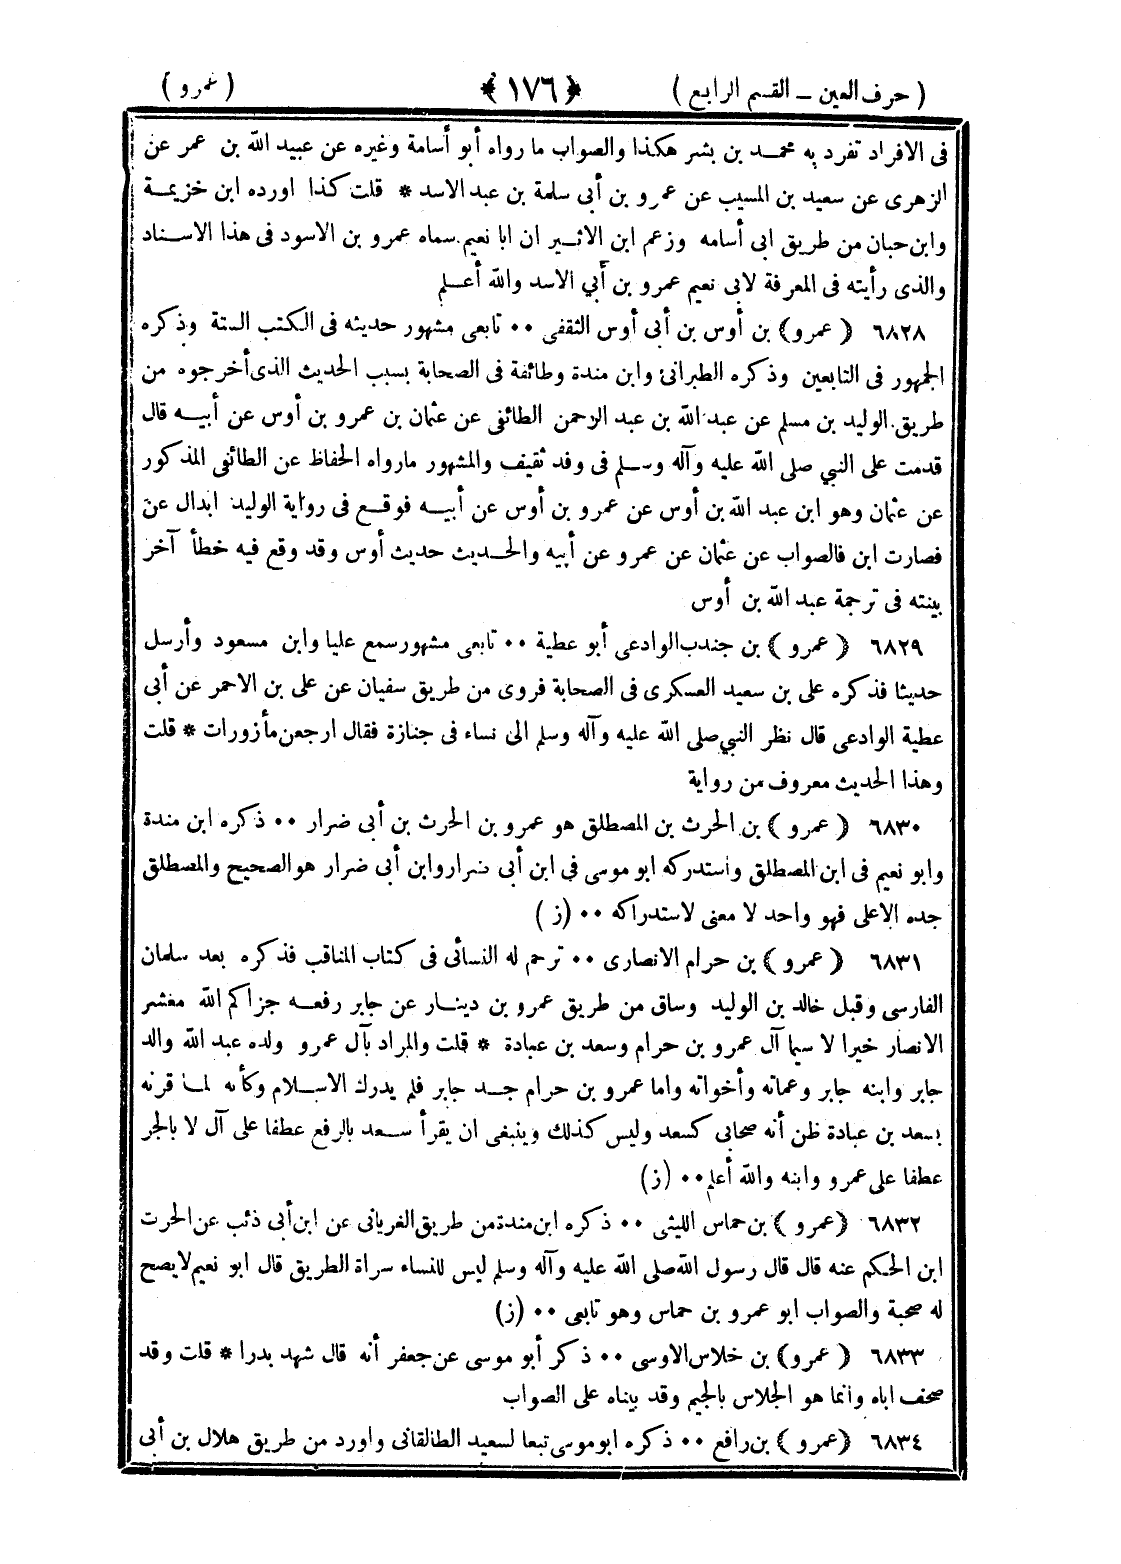 ( حرف العين – القسم الرابع ) ﴿ ١٧٦ ﴾ ( عمرو )
فى الافراد تفرد به محمد بن بشر هكذا والصواب ما رواه أبو أسامة وغيره عن عبيد الله بن عمر عن
الزهرى عن سعيد بن المسيب عن عمرو بن أبى سلمة بن عبد الاسد * قلت كذا اورده ابن خزيمة
وابن حبان من طريق ابى أسامه وزعم ابن الاثير ان ابا نعيم سماه عمرو بن الاسود فى هذا الاسناد
والذى رأيته فى المعرفة لابى نعيم عمرو بن أبي الاسد والله أعلم
٦٨٢٨ ( عمرو) بن أوس بن أبى أوس الثقفى ٠٠ تابعى مشهور حديثه فى الكتب الستة وذكره
الجمهور فى التابعين وذكره الطبرانى وابن مندة وطائفة فى الصحابة بسبب الحديث الذى أخرجوه من
طريق الوليد بن مسلم عن عبد الله بن عبد الرحمن الطائفى عن عثمان بن عمرو بن أوس عن أبيه قال
قدمت على النبي صلى الله عليه وآله وسلم فى وفد ثقيف والمشهور مارواه الحفاظ عن الطائفى المذكور
عن عثمان وهو ابن عبد الله بن أوس عن عمرو بن أوس عن أبيه فوقع فى رواية الوليد ابدال عن
فصارت ابن فالصواب عن عثمان عن عمرو عن أبيه والحديث حديث أوس وقد وقع فيه خطأ آخر
بينته فى ترجمة عبد الله بن أوس
٦٨٢٩ ( عمرو ) بن جندب الوادعى أبو عطية ٠٠ تابعى مشهور سمع عليا وابن مسعود وأرسل
حديثا فذكره على بن سعيد العسكرى فى الصحابة فروى من طريق سفيان عن على بن الاحمر عن أبى
عطية الوادعى قال نظر النبي صلى الله عليه وآله وسلم الى نساء فى جنازة فقال ارجعن مأزورات * قلت
وهذا الحديث معروف من رواية
٦٨٣٠ ( عمرو ) بن الحرث بن المصطلق هو عمرو بن الحرث بن أبى ضرار ٠٠ ذكره ابن مندة
وابو نعيم فى ابن المصطلق واستدركه ابو موسى فى ابن أبى ضرار وابن أبى ضرار هو الصحيح والمصطلق
جده الاعلى فهو واحد لا معنى لاستدراكه ٠٠ ( ز )
٦٨٣١ ( عمرو ) بن حرام الانصارى ٠٠ ترحم له النسائى فى كتاب المناقب فذكره بعد سلمان
الفارسى وقبل خالد بن الوليد وساق من طريق عمرو بن دينار عن جابر رفعه جزاكم الله معشر
الانصار خيرا لا سيما آل عمرو بن حرام وسعد بن عبادة * قلت والمراد بآل عمرو ولده عبد الله والد
جابر وابنه جابر وعماته وأخواته واما عمرو بن حرام جد جابر فلم يدرك الاسلام وكأنه لما قرنه
بسعد بن عبادة ظن أنه صحابى كسعد وليس كذلك وينبغى ان يقرأ سعد بالرفع عطفا على آل لا بالجر
عطفا على عمرو وابنه والله أعلم ٠٠ (ز)
٦٨٣٢ (عمرو ) بن حماس الليثى ٠٠ ذكره ابن مندة من طريق الفريانى عن ابن أبى ذئب عن الحرث
ابن الحكم عنه قال قال رسول الله صلى الله عليه وآله وسلم ليس للنساء سراة الطريق قال ابو نعيم لايصح
له صحبة والصواب ابو عمرو بن حماس وهو تابعى ٠٠ (ز)
٦٨٣٣ ( عمرو) بن خلاس الاوسى ٠٠ ذكر أبو موسى عن جعفر أنه قال شهد بدرا * قلت وقد
صحف اباه وانما هو الجلاس بالجيم وقد بيناه على الصواب
٦٨٣٤ (عمرو ) بن رافع ٠٠ ذكره ابوموسى تبعا لسعيد الطالقانى واورد من طريق هلال بن أبى